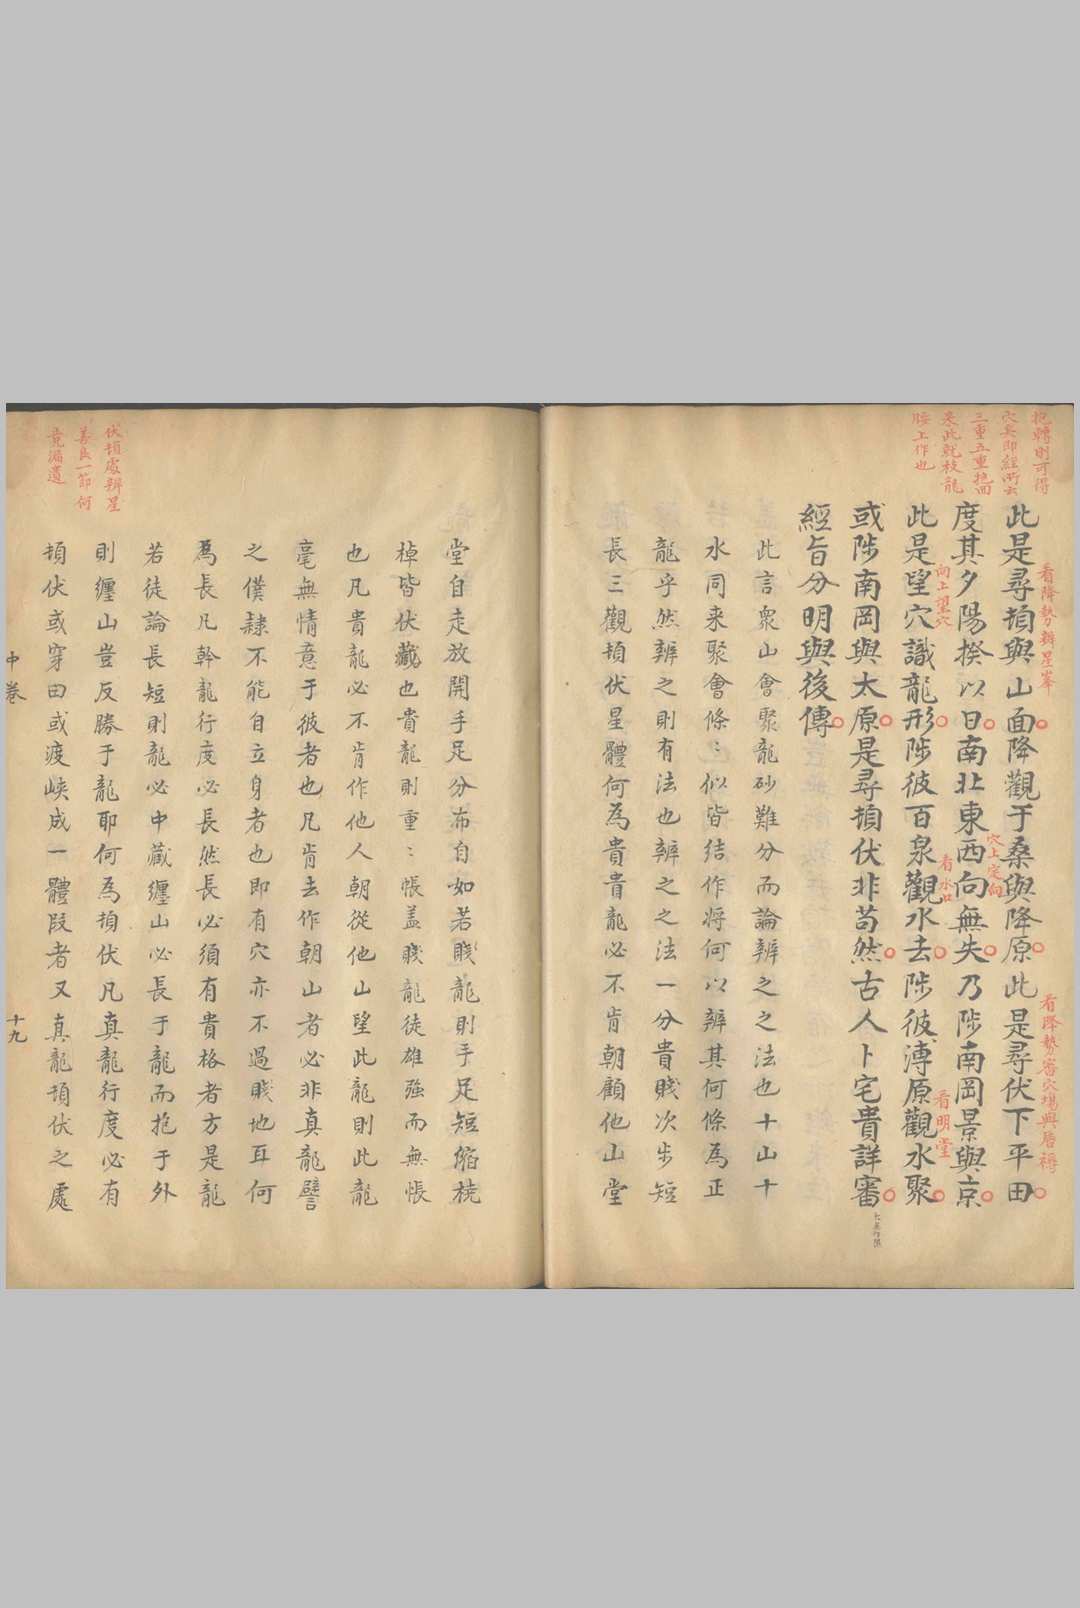 抱轉則可得
穴矣即經所云
三重五重抱回
來此就枝龍
腰上作也
此是尋頓與山面降觀于桑與降原此是尋伏下平田
看降勢辨星峯
看降勢審穴場與唇褥
度其夕陽揆以日南北東西向無失乃陟南岡景與京
穴上定向
此是望穴識龍形陟彼百泉觀水去陟彼溥原觀水聚
向上望穴
看水口
看明堂
或陟南岡與太原是尋頓伏非苟然古人卜宅貴詳審
經旨分明與後傳
此言衆山會聚龍砂難分而論辨之之法也十山十
水同来聚會條〻似皆結作將何以辨其何條為正
龍乎然辨之則有法也辨之之法一分貴賤次步短
長三觀頓伏星體何為貴貴龍必不肯朝顧他山堂
堂自走放開手足分布自如若賤龍則手足短縮橈
棹皆伏藏也貴龍則重〻帳蓋賤龍徒雄強而無帳
也凡貴龍必不肯作他人朝從他山望此龍則此龍
毫無情意于彼者也凡肯去作朝山者必非真龍譬
之僕隸不能自立身者也即有穴亦不過賤地耳何
為長凡幹龍行度必長然長必須有貴格者方是龍
若徒論長短則龍必中藏纏山必長于龍而抱于外
則纏山豈反勝于龍耶何為頓伏凡真龍行度必有
頓伏或穿田或渡峽成一體段者又真龍頓伏之處
伏頓處辨星
善良一節何
竟漏遺
中卷
十九